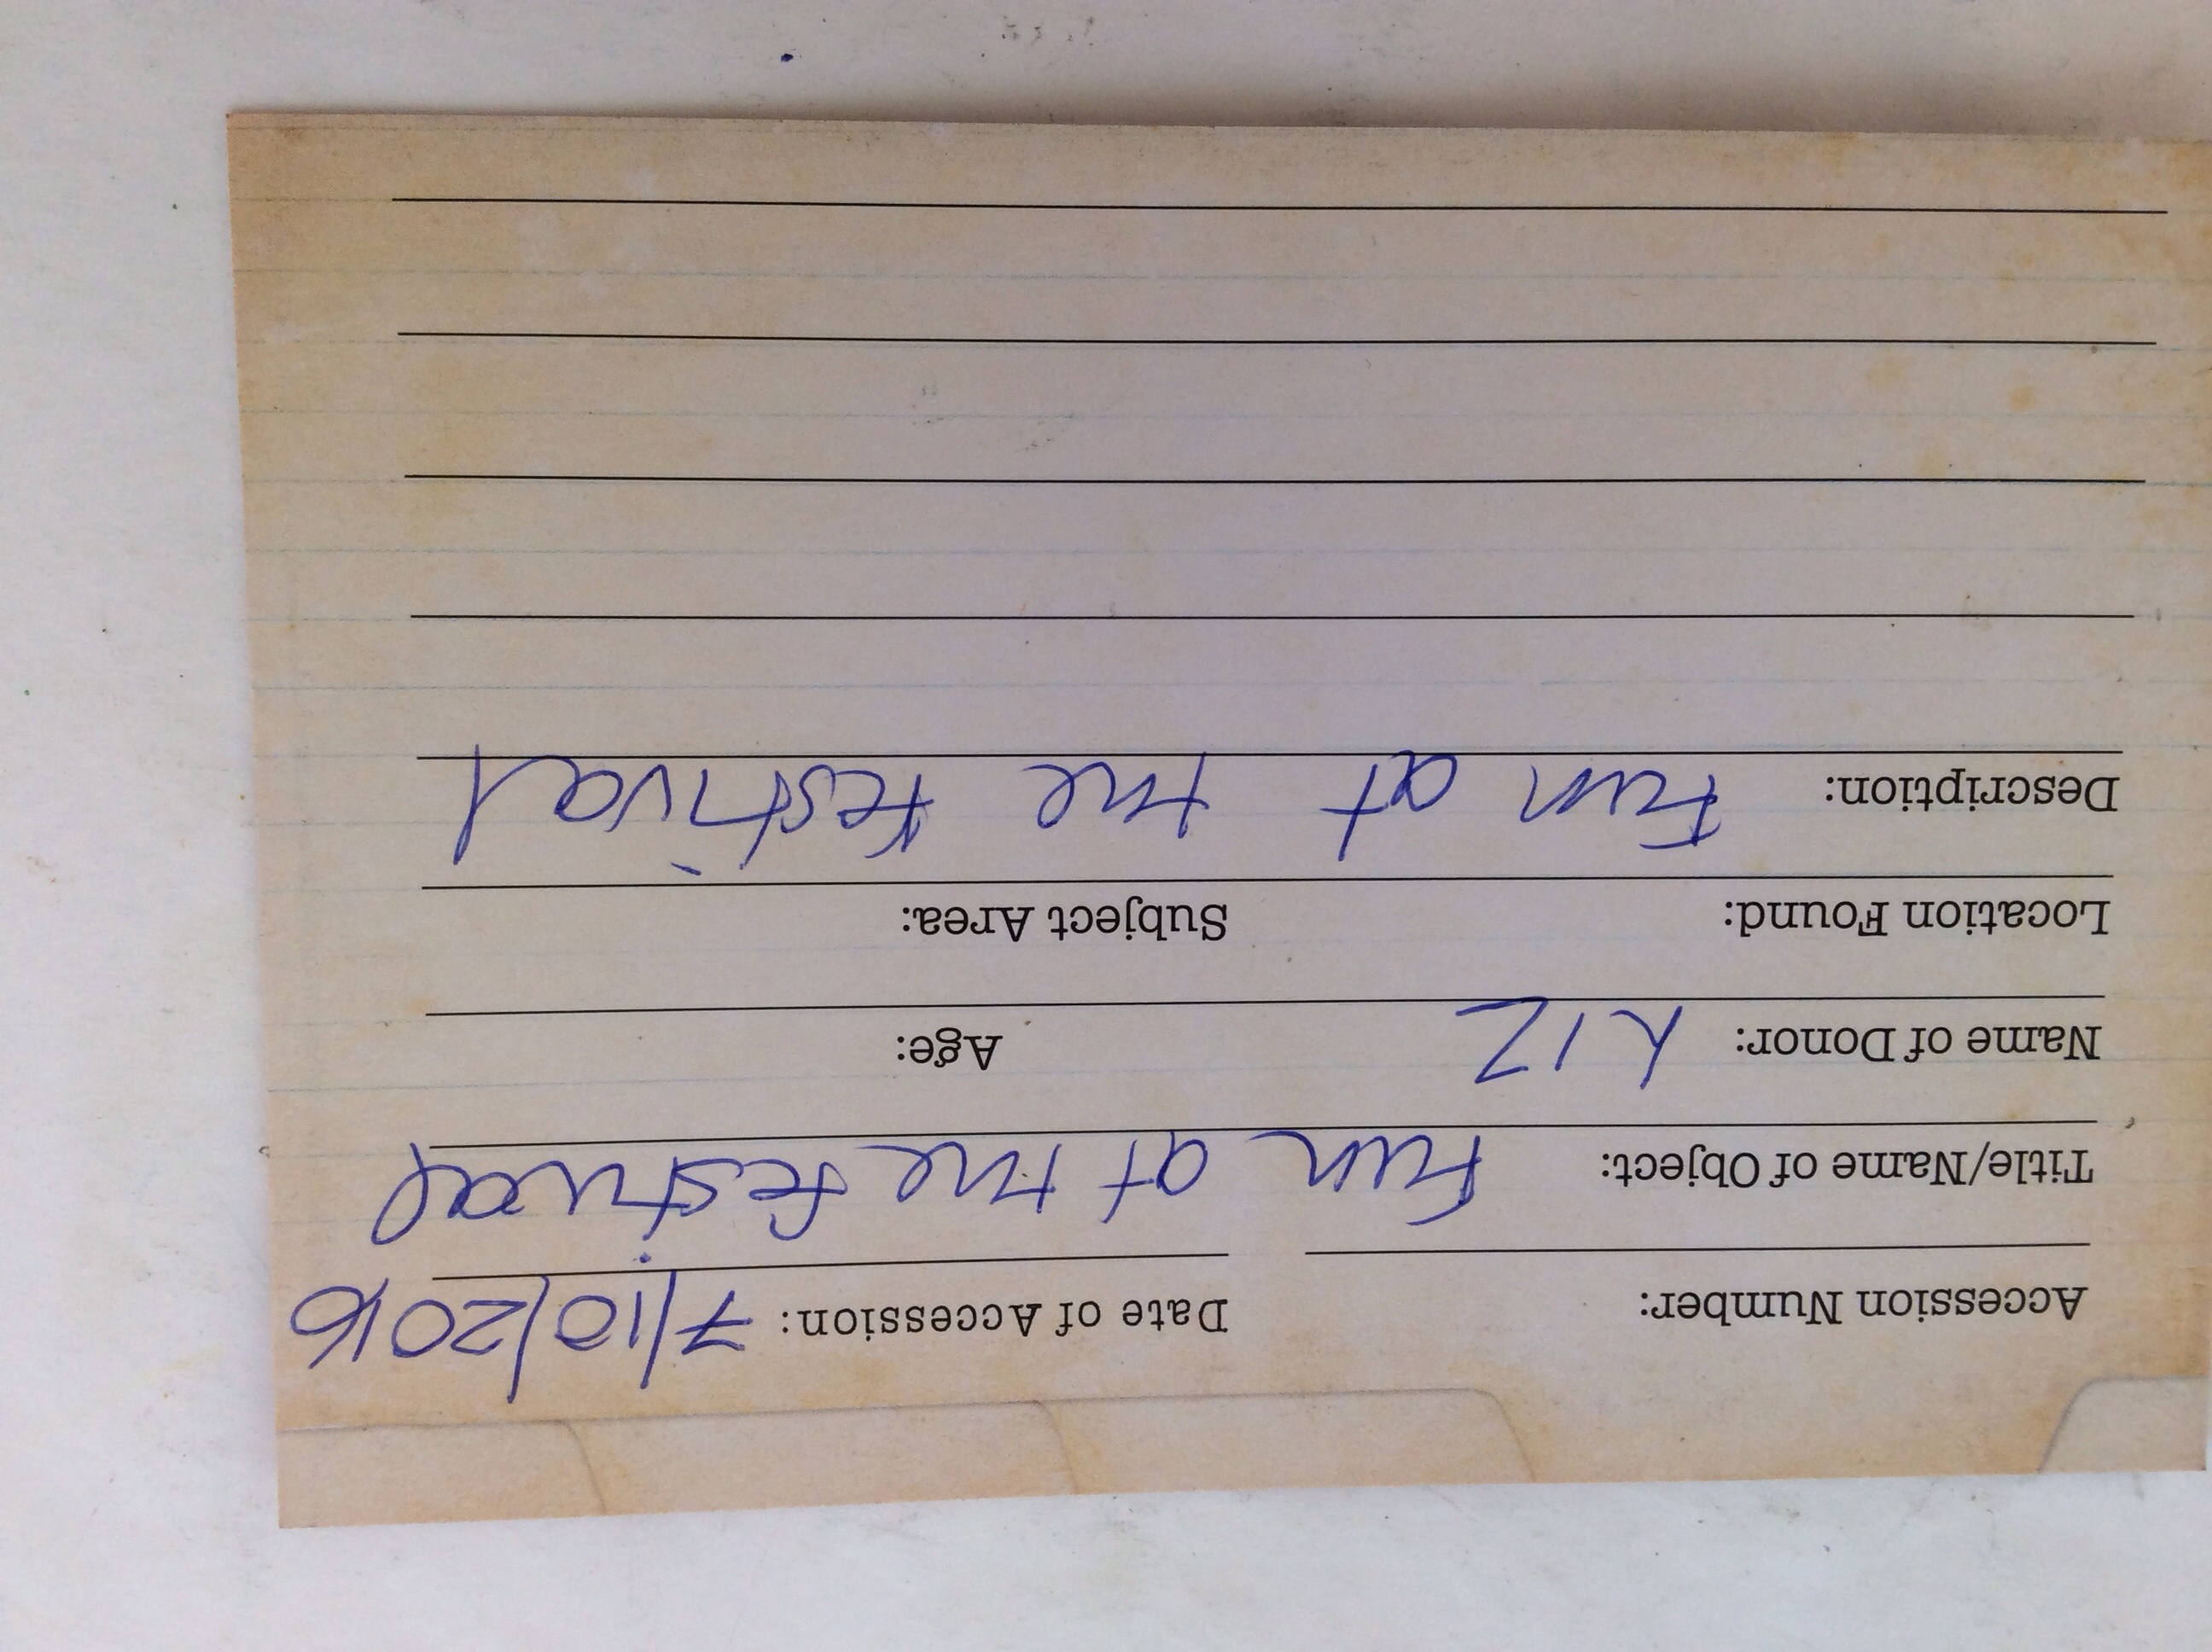 Accession Number: Date of Accession: 7/10/2016
Title/Name of Object: Fun at the festival
Name of Donor: Liz Age:
Location Found: Subject Area:
Description: Fun at the festival